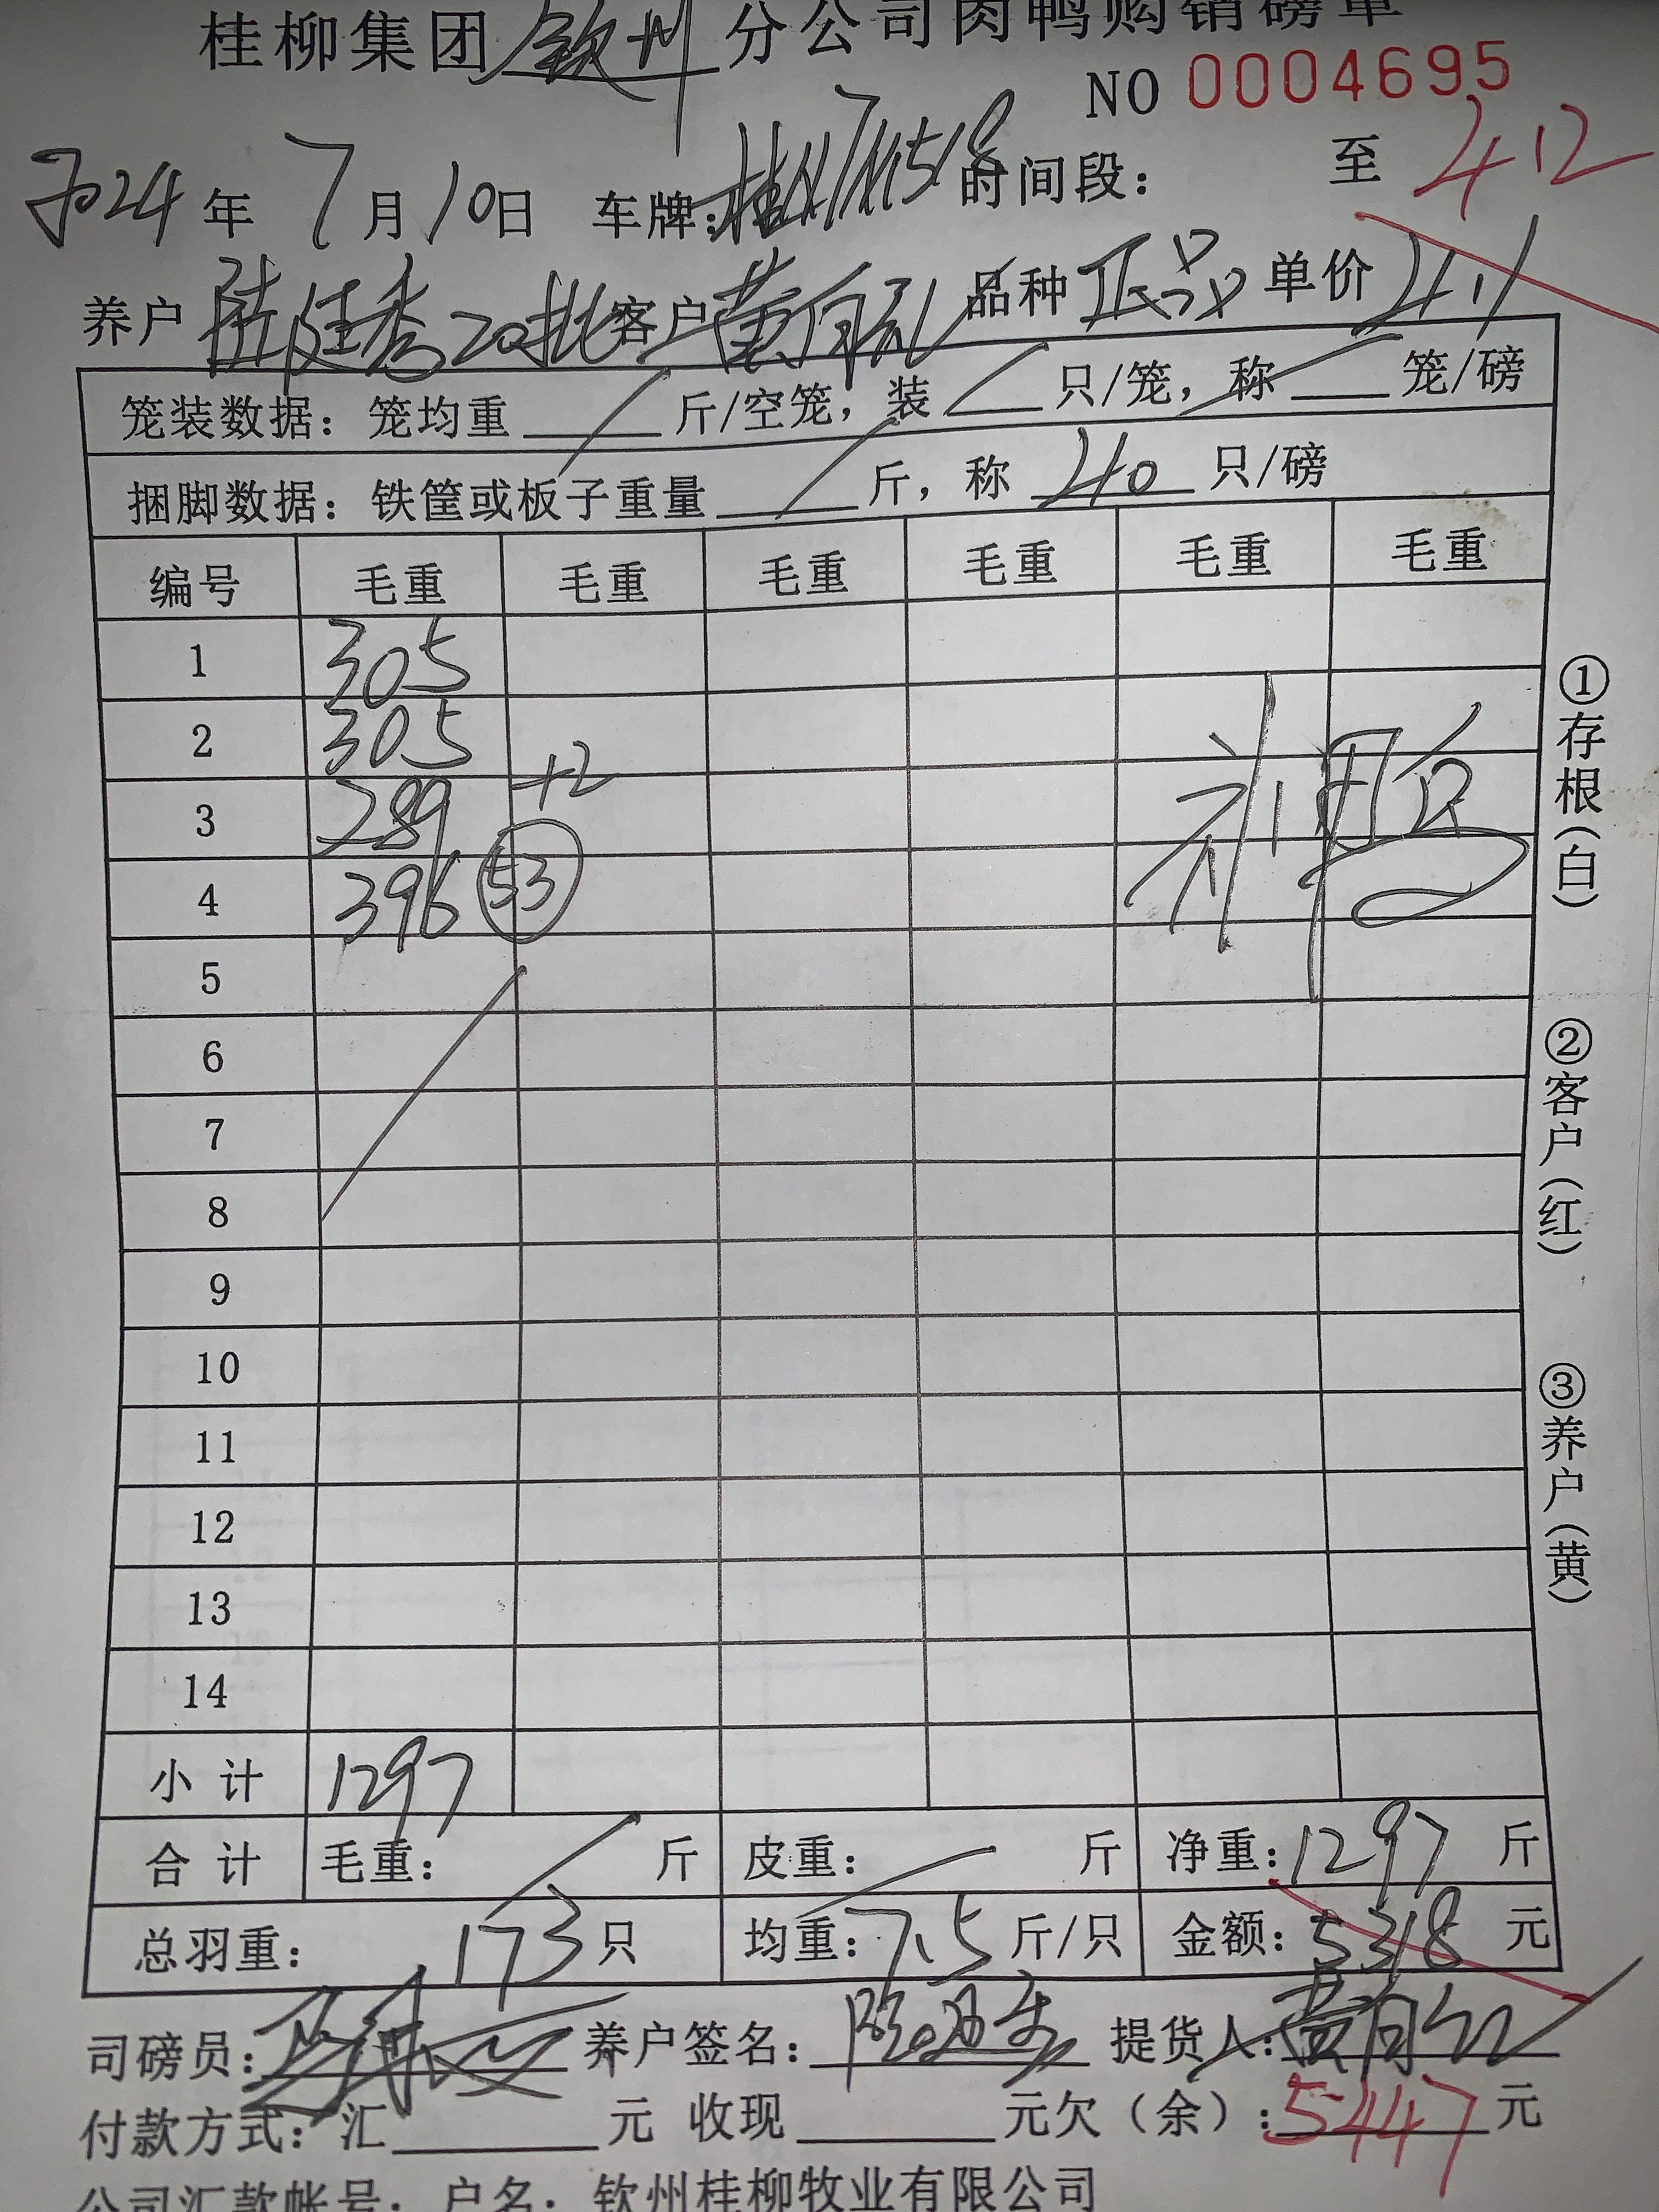 桂柳集团钦州分公司肉鸭购销磅单
NO 0004695
2024年7月10日 车牌: 时间段: 至 4.12
养户 陆廷秀20批 客户 黄 品种 正品 单价 4.1
笼装数据:笼均重 斤/空笼,装 只/笼,称 笼/磅
捆脚数据:铁筐或板子重量 斤,称 40 只/磅
编号 毛重 毛重 毛重 毛重 毛重 毛重
1 305
2 305
3 289 +2
4 396 53
5
6
7
8
9
10
11
12
13
14
小计 1297
合计 毛重: 斤 皮重: 斤 净重:1297 斤
总羽重: 173只 均重:7.5斤/只 金额:5318元
司磅员: 养户签名: 提货人:
付款方式:汇 元 收现 元欠(余):5447元
公司汇款帐号:户名:钦州桂柳牧业有限公司
①存根(白)
②客户(红)
③养户(黄)